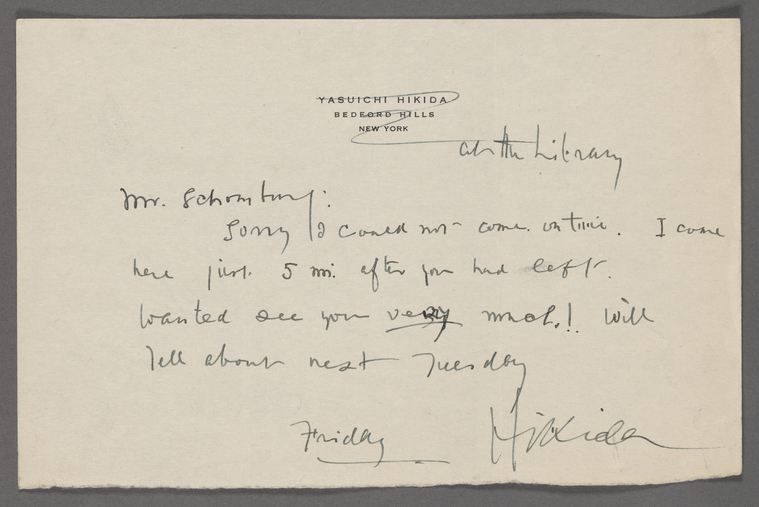 YASUICHI HIKIDA
BEDFORD HILLS
NEW YORK
at the Library
Mr. Schomburg:
Sorry I could not come on time. I came
here just 5 mi. after you had left.
Wanted see you very much! Will
Tell about next Tuesday
Friday Hikida